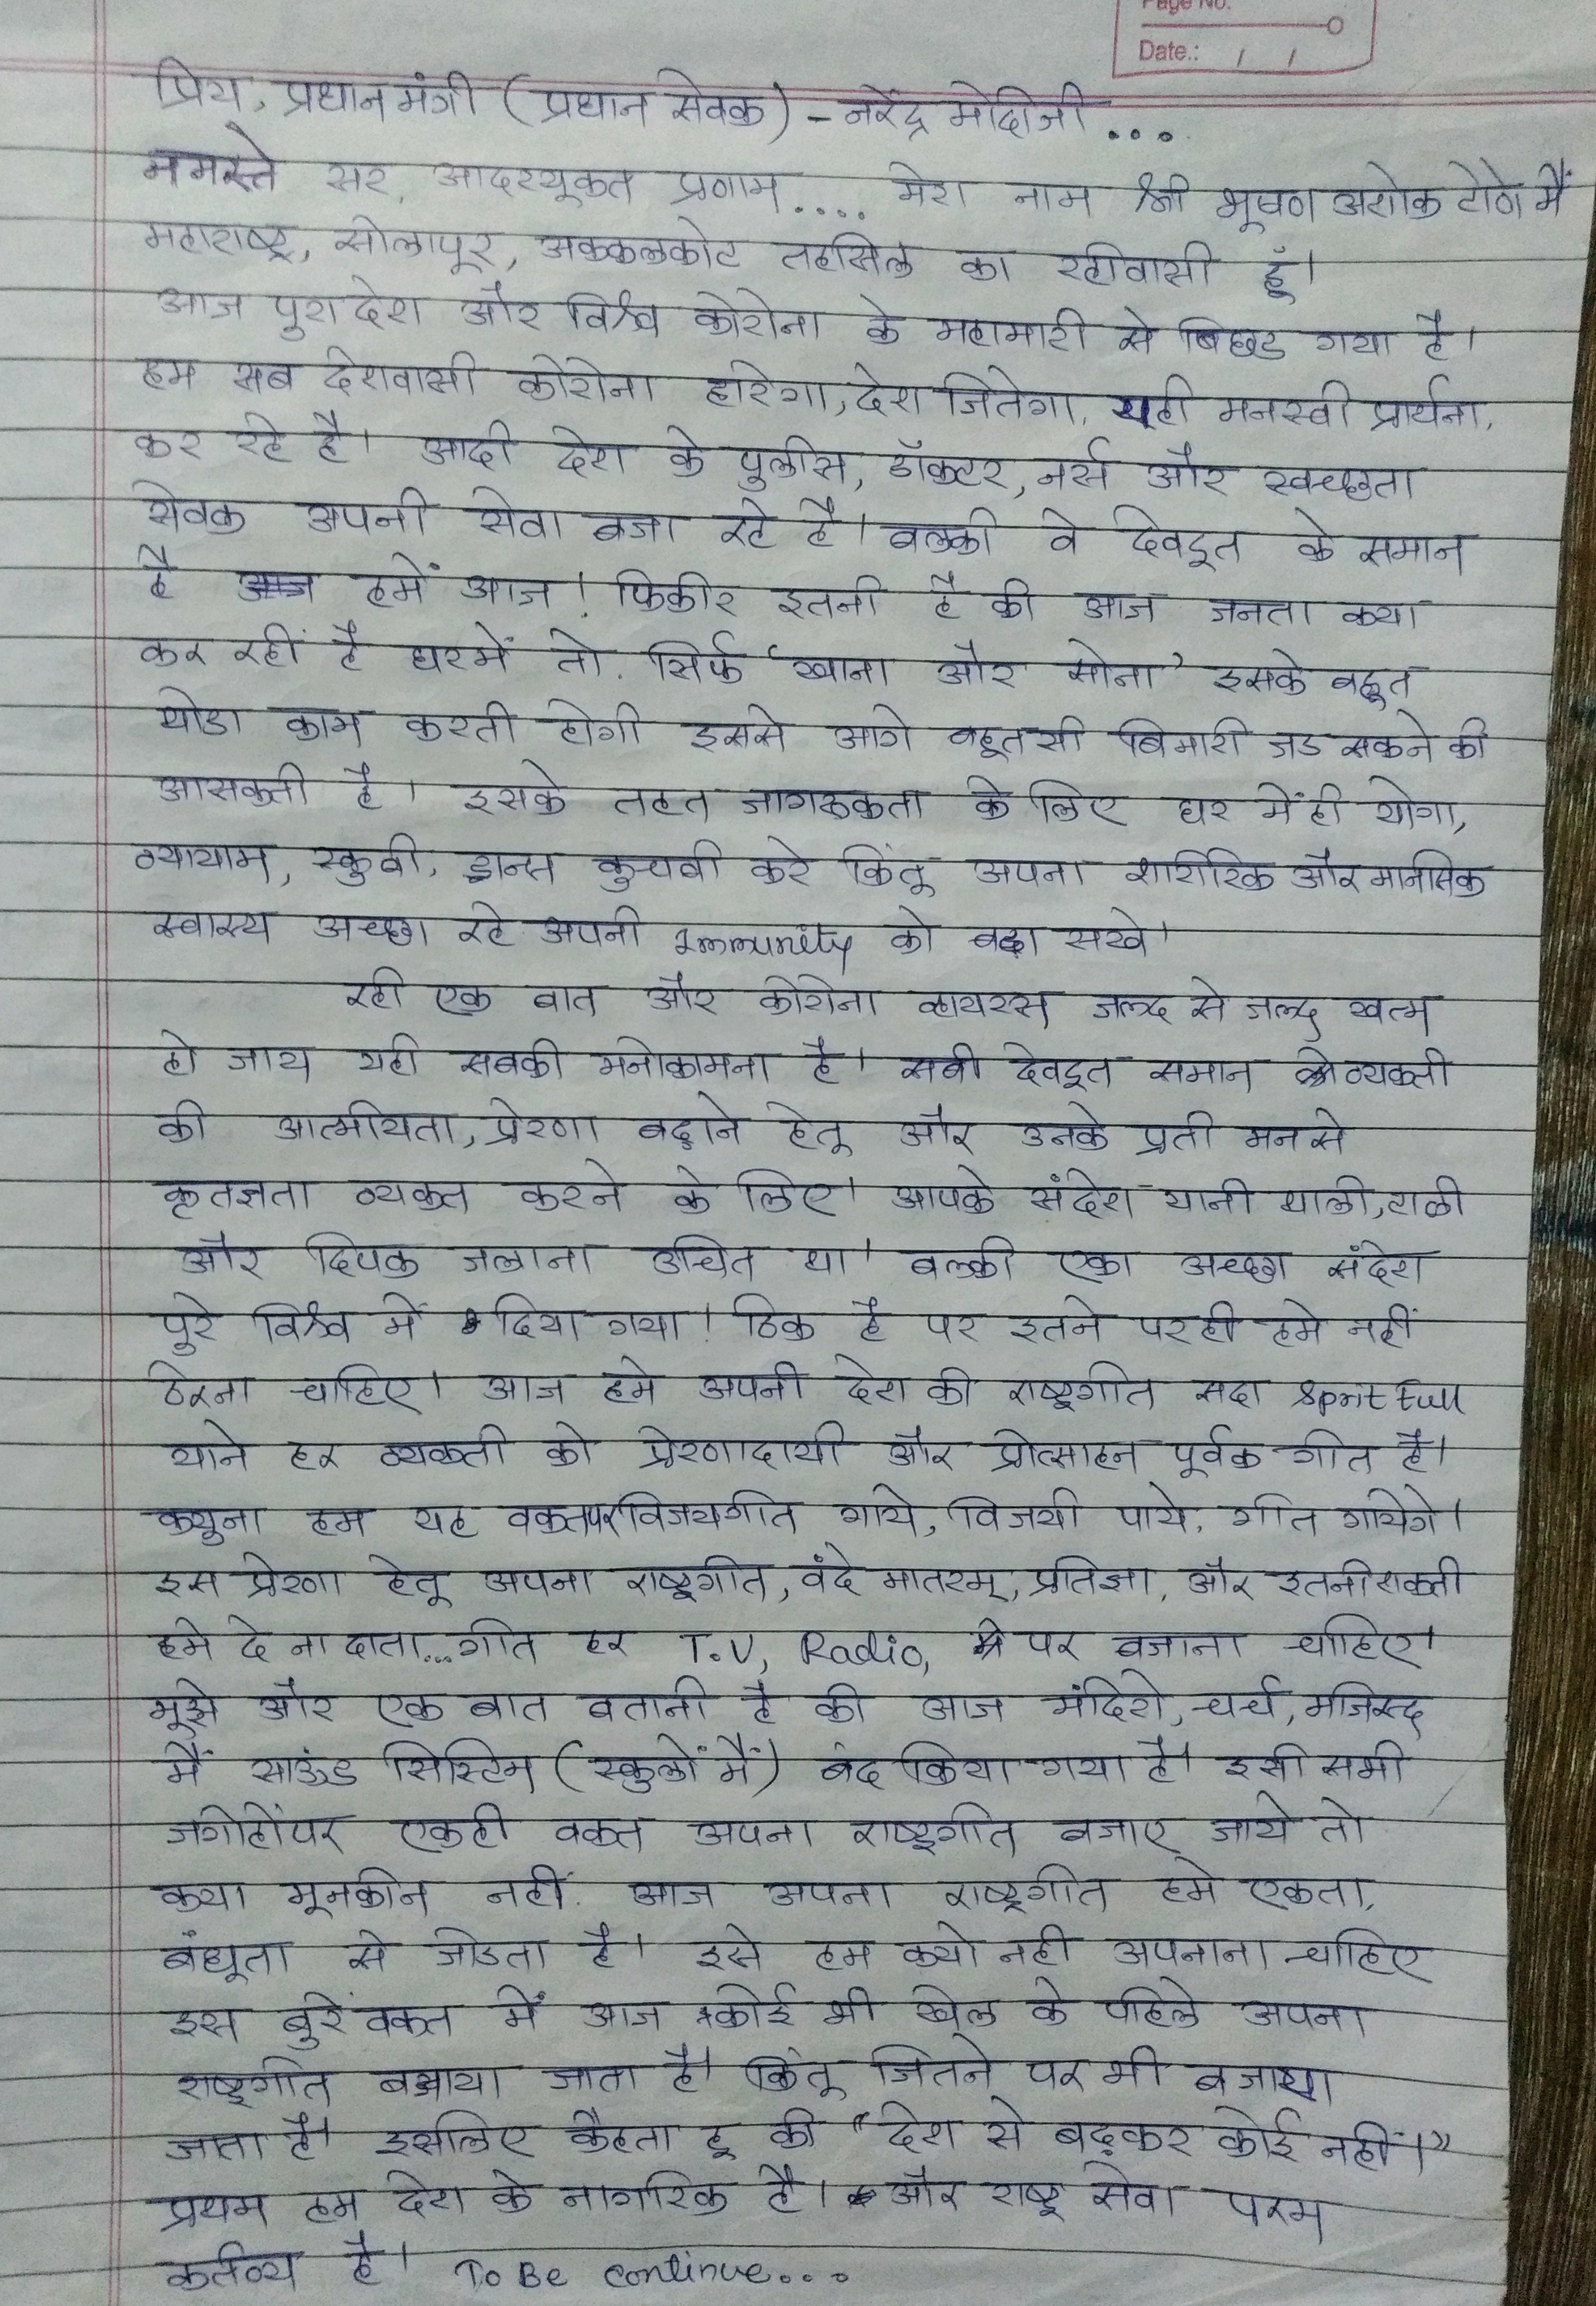 Page No.
Date.: / /
प्रिय, प्रधानमंत्री (प्रधान सेवक) - नरेंद्र मोदीजी...
नमस्ते सर, आदरयूक्त प्रणाम.... मेरा नाम श्री भूषण अशोक टोणे मैं
महाराष्ट्र, सोलापूर, अक्कलकोट तहसिल का रहीवासी हूँ।
आज पुरा देश और विश्व कोरोना के महामारी से बिछड गया है।
हम सब देशवासी कोरोना हारेगा, देश जितेगा, यही मनस्वी प्रार्थना,
कर रहे है। आदी देश के पुलीस, डॉक्टर, नर्स और स्वच्छता
सेवक अपनी सेवा बजा रहे है। बल्की वे देवदूत के समान
है हमें आज! फिकीर इतनी है की आज जनता क्या
कर रहीं है घरमें तो. सिर्फ 'खाना और सोना' इसके बहूत
थोडा काम करती होगी इससे आगे बहूतसी बिमारी जड सकने की
आसकती है। इसके तहत जागरूकता के लिए घर में ही योगा,
व्यायाम, स्कुवी, डान्स कुचबी करे किंतू अपना शारीरिक और मानसिक
स्वास्थ अच्छा रहे अपनी Immunity को बढा सखे।
रही एक बात और कोरोना व्हायरस जल्द से जल्द खत्म
हो जाय यही सबकी मनोकामना है। सबी देवदूत समान व्यक्ती
की आत्मीयता, प्रेरणा बढ़ाने हेतू और उनके प्रती मन से
कृतज्ञता व्यक्त करने के लिए। आपके संदेश यानी थाली, टाळी
और दिपक जलाना उचित था। बल्की एका अच्छा संदेश
पुरे विश्व में दिया गया! ठिक है पर इतने परही हमे नहीं
ठेरना चाहिए। आज हमे अपनी देश की राष्ट्रगीत सदा Sprit Full
याने हर व्यक्ती को प्रेरणादायी और प्रोत्साहन पूर्वक गीत है।
क्युना हम यह वक्तपर विजयगीत गाये, विजयी पाये, गीत गायेगे।
इस प्रेरणा हेतू अपना राष्ट्रगीत, वंदे मातरम्, प्रतिज्ञा, और इतनी शक्ती
हमे दे ना दाता... गीत हर T.V, Radio, पर बजाना चाहिए।
मूझे और एक बात बतानी है की आज मंदिरो, चर्च, मजिस्द
मैं साऊंड सिस्टिम (स्कुलों मैं) बंद किया गया है। इसी सभी
जगोहोंपर एकही वक्त अपना राष्ट्रगीत बजाए जाये तो
क्या मूनकीन नहीं. आज अपना राष्ट्रगीत हमे एकता,
बंधूता से जोडता है। इसे हम क्यो नही अपनाना चाहिए
इस बुरे वक्त में आज कोई भी खेल के पहिले अपना
राष्ट्रगीत बजाया जाता है। किंतू जितने पर भी बजाया
जाता है। इसलिए कैहता हू की "देश से बढ़कर कोई नहीं।"
प्रथम हम देश के नागरिक है। और राष्ट्र सेवा परम
कर्तव्य है। To Be continue...